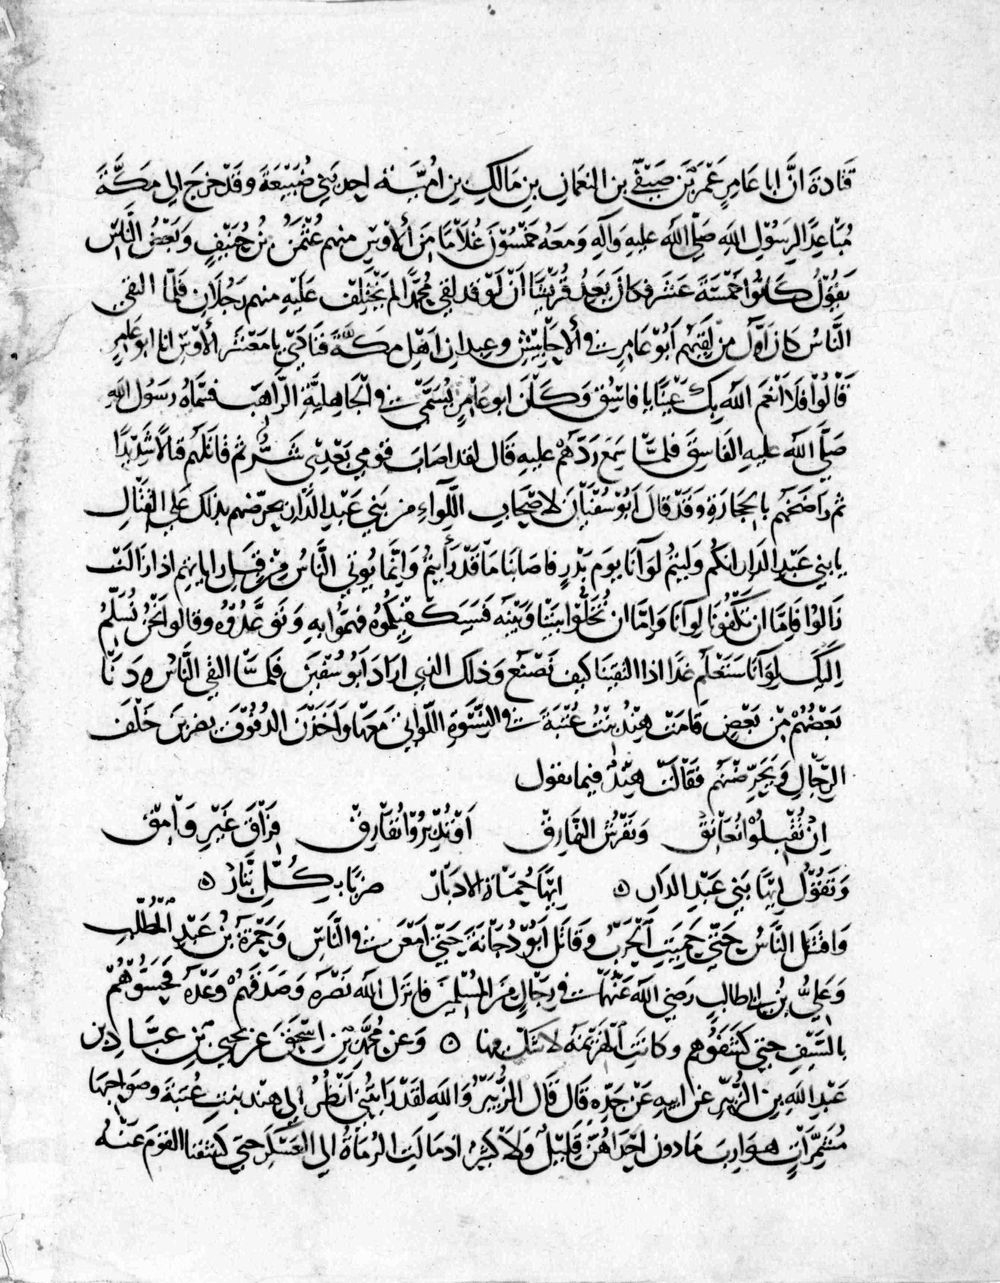 قتادة انَّ ابا عَامِرٍ عَمْرَ بنَ صَيْفيّ بن النعمان بن مَالكِ بن امُيَّة احد بَني ضُبَيْعَةَ وقدْ خرَجَ الى مكَّةَ
مُبَاعِدًا لِرسُوْلِ اللهِ صَلَّى اللهُ عليهِ وآلهِ ومَعَهُ خمْسُوْنَ غُلاَمًا مِنَ الأوْسِ منهم عُثْمنُ بْنُ حُنَيْفٍ وَبَعْضُ النَّاسِ
يَقُوْلُ كَانُوا خَمْسَةَ عَشَرَ فكانَ يَعِدُ قُرَيْشًا انْ لَوْ قد لقي مُحَمَّدًا لم يَخْتَلِفْ عَلَيْهِ منهم رَجُلاَنِ فَلمَّا التقى
النَّاسُ كانَ اوّلَ مَنْ لَقِيَهُمْ أَبُوْ عَامِرٍ في الأحَابِيْشِ وعبدان اهْل مَكَّةَ فَنَادَى يا مَعْشَرَ الأوْسِ انا ابو عَامِرٍ
قَالُوْا فَلاَ انْعَمَ اللهُ بِكَ عَيْنًا يا فاسُقُ وَكَانَ ابو عَامِرٍ يُسَمَّى في الْجَاهليَّةِ الرَّاهِبَ فسَمَّاهُ رَسُوْل اللهِ
صَلَّى اللهُ عليهِ الفَاسِقَ فلمَّا سَمِعَ رَدَّهُمْ عليهِ قَال لقد اصَابَ قَوْمي بَعْدِيْ شَرٌّ ثم قاتلهُم قتالاً شَدِيْدًا
ثم رَاضَخَهُم بالحِجَارَةِ وَقَدْ قالَ ابُوْ سُفْيَانَ لاصْحَابِ اللِّواءِ من بَني عَبْدِ الدَّارِ يحرّضهم بذلكَ عَلى القِتَالِ
يا بني عَبْدِ الدَارِ انكم وليتُم لوَآنَا يومَ بَدْرٍ فاصَابَنا مَا قَدْ رَأَيْتُم وَانمَّا يُؤتى النَّاسُ مِنْ قِبَلِ راياتِهم اذا زَالتْ
زَالُوْا فَاِمَّا ان تَكْفُوْنا لِوآنَا وَاِمَّا انْ تُخَلُّوْا بَيْننَا وَبَيْنَه فَسَنكْفِيْكُمُوْه فهمُّوا بهِ وَتَوعَّدُوْه وقالوا نَحْنُ نُسَلِّمُ
اِلَيْكَ لِوَآنَا سَتَعْلَم غَدًا اذا التقيْنَا كيفَ نَصْنَع وَذلكَ الذي ارَادَ ابُو سُفْيَنَ فلمَّا التقى النَّاسُ وَدَنَا
بَعْضُهُمْ مِنْ بَعْضٍ قَامَتْ هِنْدُ بنْتُ عُتْبَةَ في النِّسْوَةِ اللَّوَاتي مَعَهَا وَاخَذْنَ الدفُوْفَ يضربْنَ خَلْفَ
الرِّجَالِ وَيُحَرِّضْنَهُم فقَالتْ هِنْدُ فيما تقول
اِنْ تُقْبِلوُا نُعَانِقْ وَنَفْرُشِ النَّمَارِقْ اَوْ تُدْبِرُوْا نُفَارِقْ فِرَاقَ غَيْرِ وَامِقْ
وَتَقُوْلُ اِيْهًا بَني عَبْدِ الدارِ ه ايْهًا حُمَاةَ الادبَارْ ضربًا بِكُلِّ بَتَّارْ ه
وَاقتتل النَّاسُ حَتَّى حَمِيَتِ الْحَرْبُ وقَاتَل ابُوْ دُجَانَةَ حَتَّى امْعَنَ في النَّاسِ وَحَمْزَةُ بْنُ عَبْدِ المُطَّلِبِ
وَعَلِيُّ بْنُ ابي طالبٍ رَضي اللهُ عَنْهُمَا في رِجَالٍ مِنَ المسْلمِيْنَ فانزَلَ اللهُ نَصْرَهُ وَصَدَقَهُمْ وَعْدَهُ فحَسُّوْهُمْ
بالسَّيْفِ حَتى كَشَفُوْهم وكانتِ الهَزِيْمَةُ لاَ شكَّ فيها ه وَعَنْ مُحَمَّدِ بْنِ اِسْحَقَ عَنْ يحيى بْنِ عبَّادِ بن
عَبْدِ اللهِ بن الزُّبَيْرِ عَن ابيه عَنْ جَدِّه قَال قَال الزُّبَيْرُ وَاللهِ لقَدْ رَايْتُني انْظُرُ الى هند بنتِ عُتبَةَ وصَوَاحِبِهَا
مُشَمِّرَاتٍ هوَاربَ مَا دون اخذِهنَّ قَلِيْلٌ وَلاَ كثيرٌ اذ مَالَتِ الرُمَاةُ الى العَسْكَرِ حِيْنَ كشَفْنا القومَ عَنْهُ